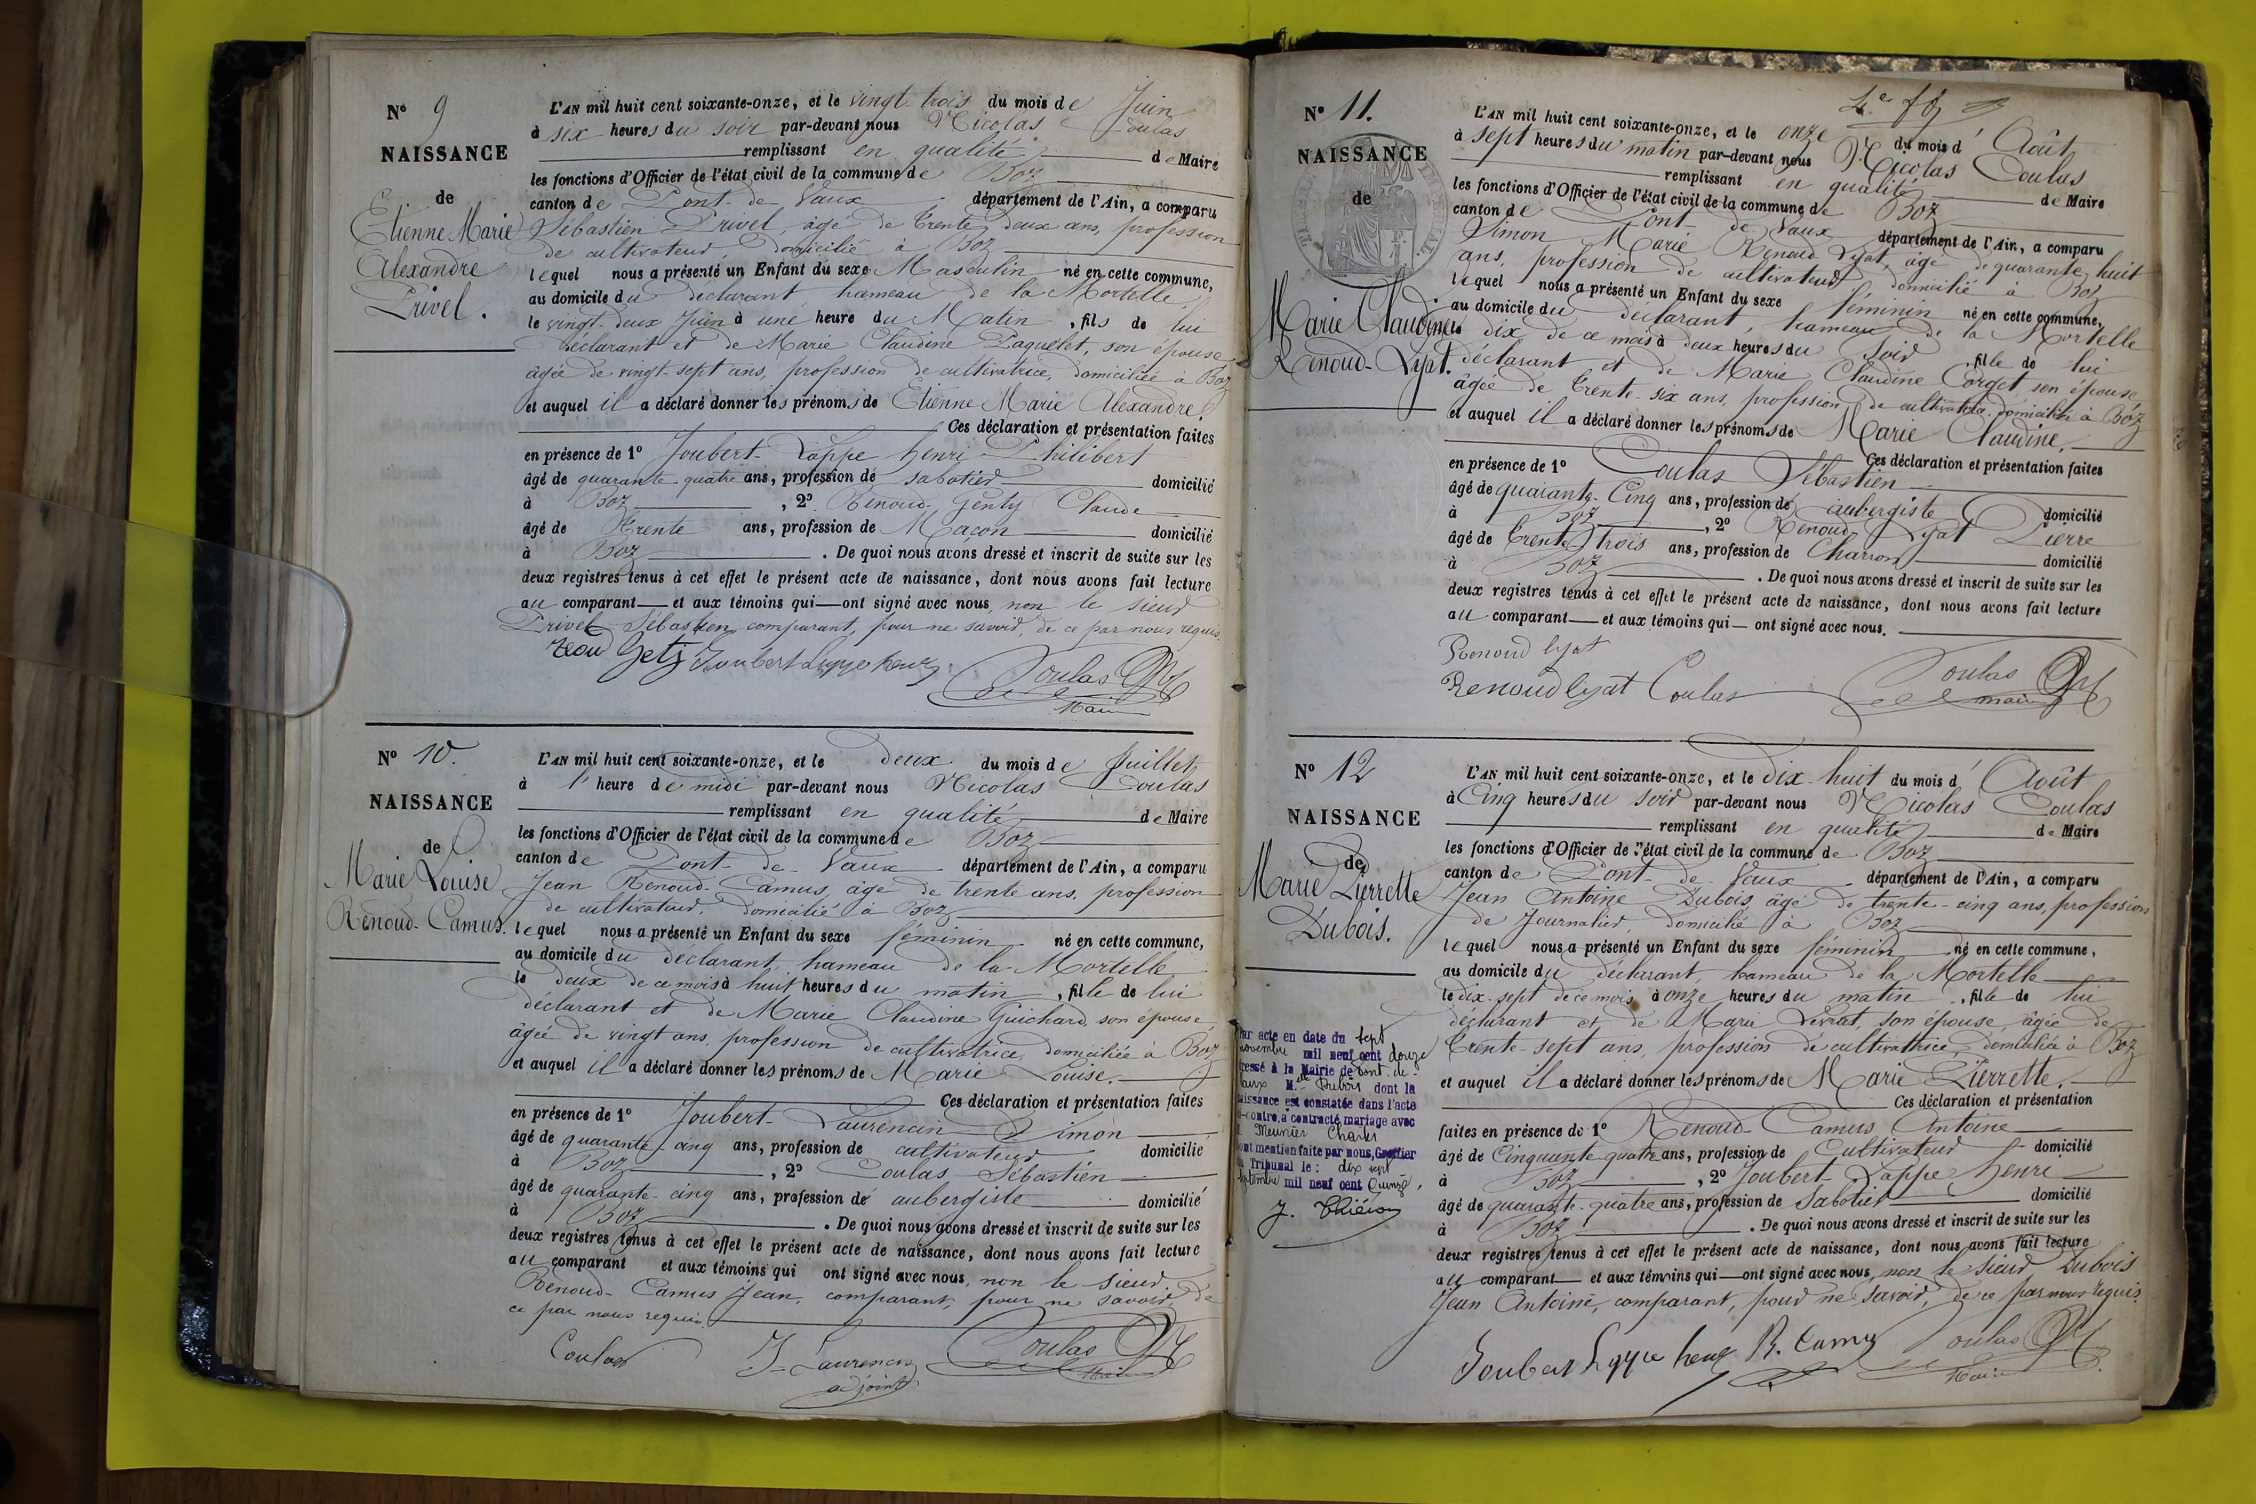 N° 9
NAISSANCE
de
Etienne Marie
Alexandre
Privel.
L'AN mil huit cent soixante-onze, et le vingt trois du mois de Juin
à six heures du soir par-devant nous Nicolas Coulas
remplissant en qualité de Maire
les fonctions d'Officier de l'état civil de la commune de Boz
canton de Pont-de-Vaux département de l'Ain, a comparu
Sébastien Privel, âgé de trente deux ans, profession
de cultivateur, domicilié à Boz
lequel nous a présenté un Enfant du sexe Masculin né en cette commune,
au domicile du déclarant, hameau de la Mortelle
le vingt-deux Juin à une heure du Matin, fils de lui
déclarant et de Marie Claudine Paquelet, son épouse
âgée de vingt-sept ans, profession de cultivatrice, domiciliée à Boz
et auquel il a déclaré donner les prénoms de Etienne Marie Alexandre.
Ces déclaration et présentation faites
en présence de 1° Joubert-Lappe Henri Philibert
âgé de quarante quatre ans, profession de sabotier domicilié
à Boz, 2° Renoud-Genty Claude
âgé de Trente ans, profession de Maçon domicilié
à Boz. De quoi nous avons dressé et inscrit de suite sur les
deux registres tenus à cet effet le présent acte de naissance, dont nous avons fait lecture
au comparant et aux témoins qui ont signé avec nous, non le sieur
Privel Sébastien comparant, pour ne savoir, de ce par nous requis.
Coulas
Maire
N° 10.
NAISSANCE
de
Marie Louise
Renoud-Camus.
L'AN mil huit cent soixante-onze, et le deux du mois de Juillet
à l'heure de midi par-devant nous Nicolas Coulas
remplissant en qualité de Maire
les fonctions d'Officier de l'état civil de la commune de Boz
canton de Pont-de-Vaux département de l'Ain, a comparu
Jean Renoud-Camus, âgé de trente ans, profession
de cultivateur, domicilié à Boz
lequel nous a présenté un Enfant du sexe féminin né en cette commune,
au domicile du déclarant, hameau de la Mortelle
le deux de ce mois à huit heures du matin, fille de lui
déclarant et de Marie Claudine Guichard, son épouse,
âgée de vingt ans, profession de cultivatrice, domiciliée à Boz
et auquel il a déclaré donner les prénoms de Marie Louise.
Ces déclaration et présentation faites
en présence de 1° Joubert-Laurencin Simon
âgé de quarante-cinq ans, profession de cultivateur domicilié
à Boz, 2° Coulas Sébastien
âgé de quarante-cinq ans, profession de aubergiste domicilié
à Boz. De quoi nous avons dressé et inscrit de suite sur les
deux registres tenus à cet effet le présent acte de naissance, dont nous avons fait lecture
au comparant et aux témoins qui ont signé avec nous, non le sieur
Renoud-Camus Jean, comparant, pour ne savoir, de
ce par nous requis.
Coulas J. Laurencin Coulas
adjoint Maire
N° 11.
NAISSANCE
de
Marie Claudine
Renoud-Lyat.
L'AN mil huit cent soixante-onze, et le onze du mois d'Août
à sept heures du matin par-devant nous Nicolas Coulas
remplissant en qualité de Maire
les fonctions d'Officier de l'état civil de la commune de Boz
canton de Pont-de-Vaux département de l'Ain, a comparu
Simon Marie Renoud Lyat, âgé de quarante huit
ans, profession de cultivateur domicilié à Boz
lequel nous a présenté un Enfant du sexe féminin né en cette commune,
au domicile du déclarant, hameau de la Mortelle
le dix de ce mois à deux heures du soir, fille de lui
déclarant et de Marie Claudine Corget son épouse,
âgée de trente-six ans, profession de cultivatrice domiciliée à Boz
et auquel il a déclaré donner les prénoms de Marie Claudine.
Ces déclaration et présentation faites
en présence de 1° Coulas Sébastien
âgé de quarante-cinq ans, profession de aubergiste domicilié
à Boz, 2° Renoud Lyat Pierre
âgé de trente trois ans, profession de Charron domicilié
à Boz. De quoi nous avons dressé et inscrit de suite sur les
deux registres tenus à cet effet le présent acte de naissance, dont nous avons fait lecture
au comparant et aux témoins qui ont signé avec nous.
Renoud lyat
Renoud lyat Coulas Coulas
maire
N° 12
NAISSANCE
de
Marie Pierrette
Dubois.
L'AN mil huit cent soixante-onze, et le dix-huit du mois d'Août
à Cinq heures du soir par-devant nous Nicolas Coulas
remplissant en qualité de Maire
les fonctions d'Officier de l'état civil de la commune de Boz
canton de Pont-de-Vaux département de l'Ain, a comparu
Jean Antoine Dubois âgé de trente-cinq ans, profession
de Journalier, domicilié à Boz
lequel nous a présenté un Enfant du sexe féminin né en cette commune,
au domicile du déclarant, hameau de la Mortelle
le dix-sept de ce mois à onze heures du matin, fille de lui
déclarant et de Marie Levrat, son épouse, âgée de
trente-sept ans, profession de cultivatrice, domiciliée à Boz
et auquel il a déclaré donner les prénoms de Marie Pierrette.
Ces déclaration et présentation
faites en présence de 1° Renoud-Camus Antoine
âgé de Cinquante quatre ans, profession de Cultivateur domicilié
à Boz, 2° Joubert-Lappe Henri
âgé de quarante-quatre ans, profession de Sabotier domicilié
à Boz. De quoi nous avons dressé et inscrit de suite sur les
deux registres tenus à cet effet le présent acte de naissance, dont nous avons fait lecture
au comparant et aux témoins qui ont signé avec nous, non le sieur Dubois
Jean Antoine, comparant, pour ne savoir, de ce par nous requis.
R. Camus Coulas
Maire
Par acte en date du sept
novembre mil neuf cent douze
dressé à la Mairie de Pont-de-
Vaux Melle Dubois dont la
naissance est constatée dans l'acte
ci-contre, a contracté mariage avec
Meunier Charles
dont mention faite par nous, Greffier
du Tribunal le: dix sept
septembre mil neuf cent Quinze.